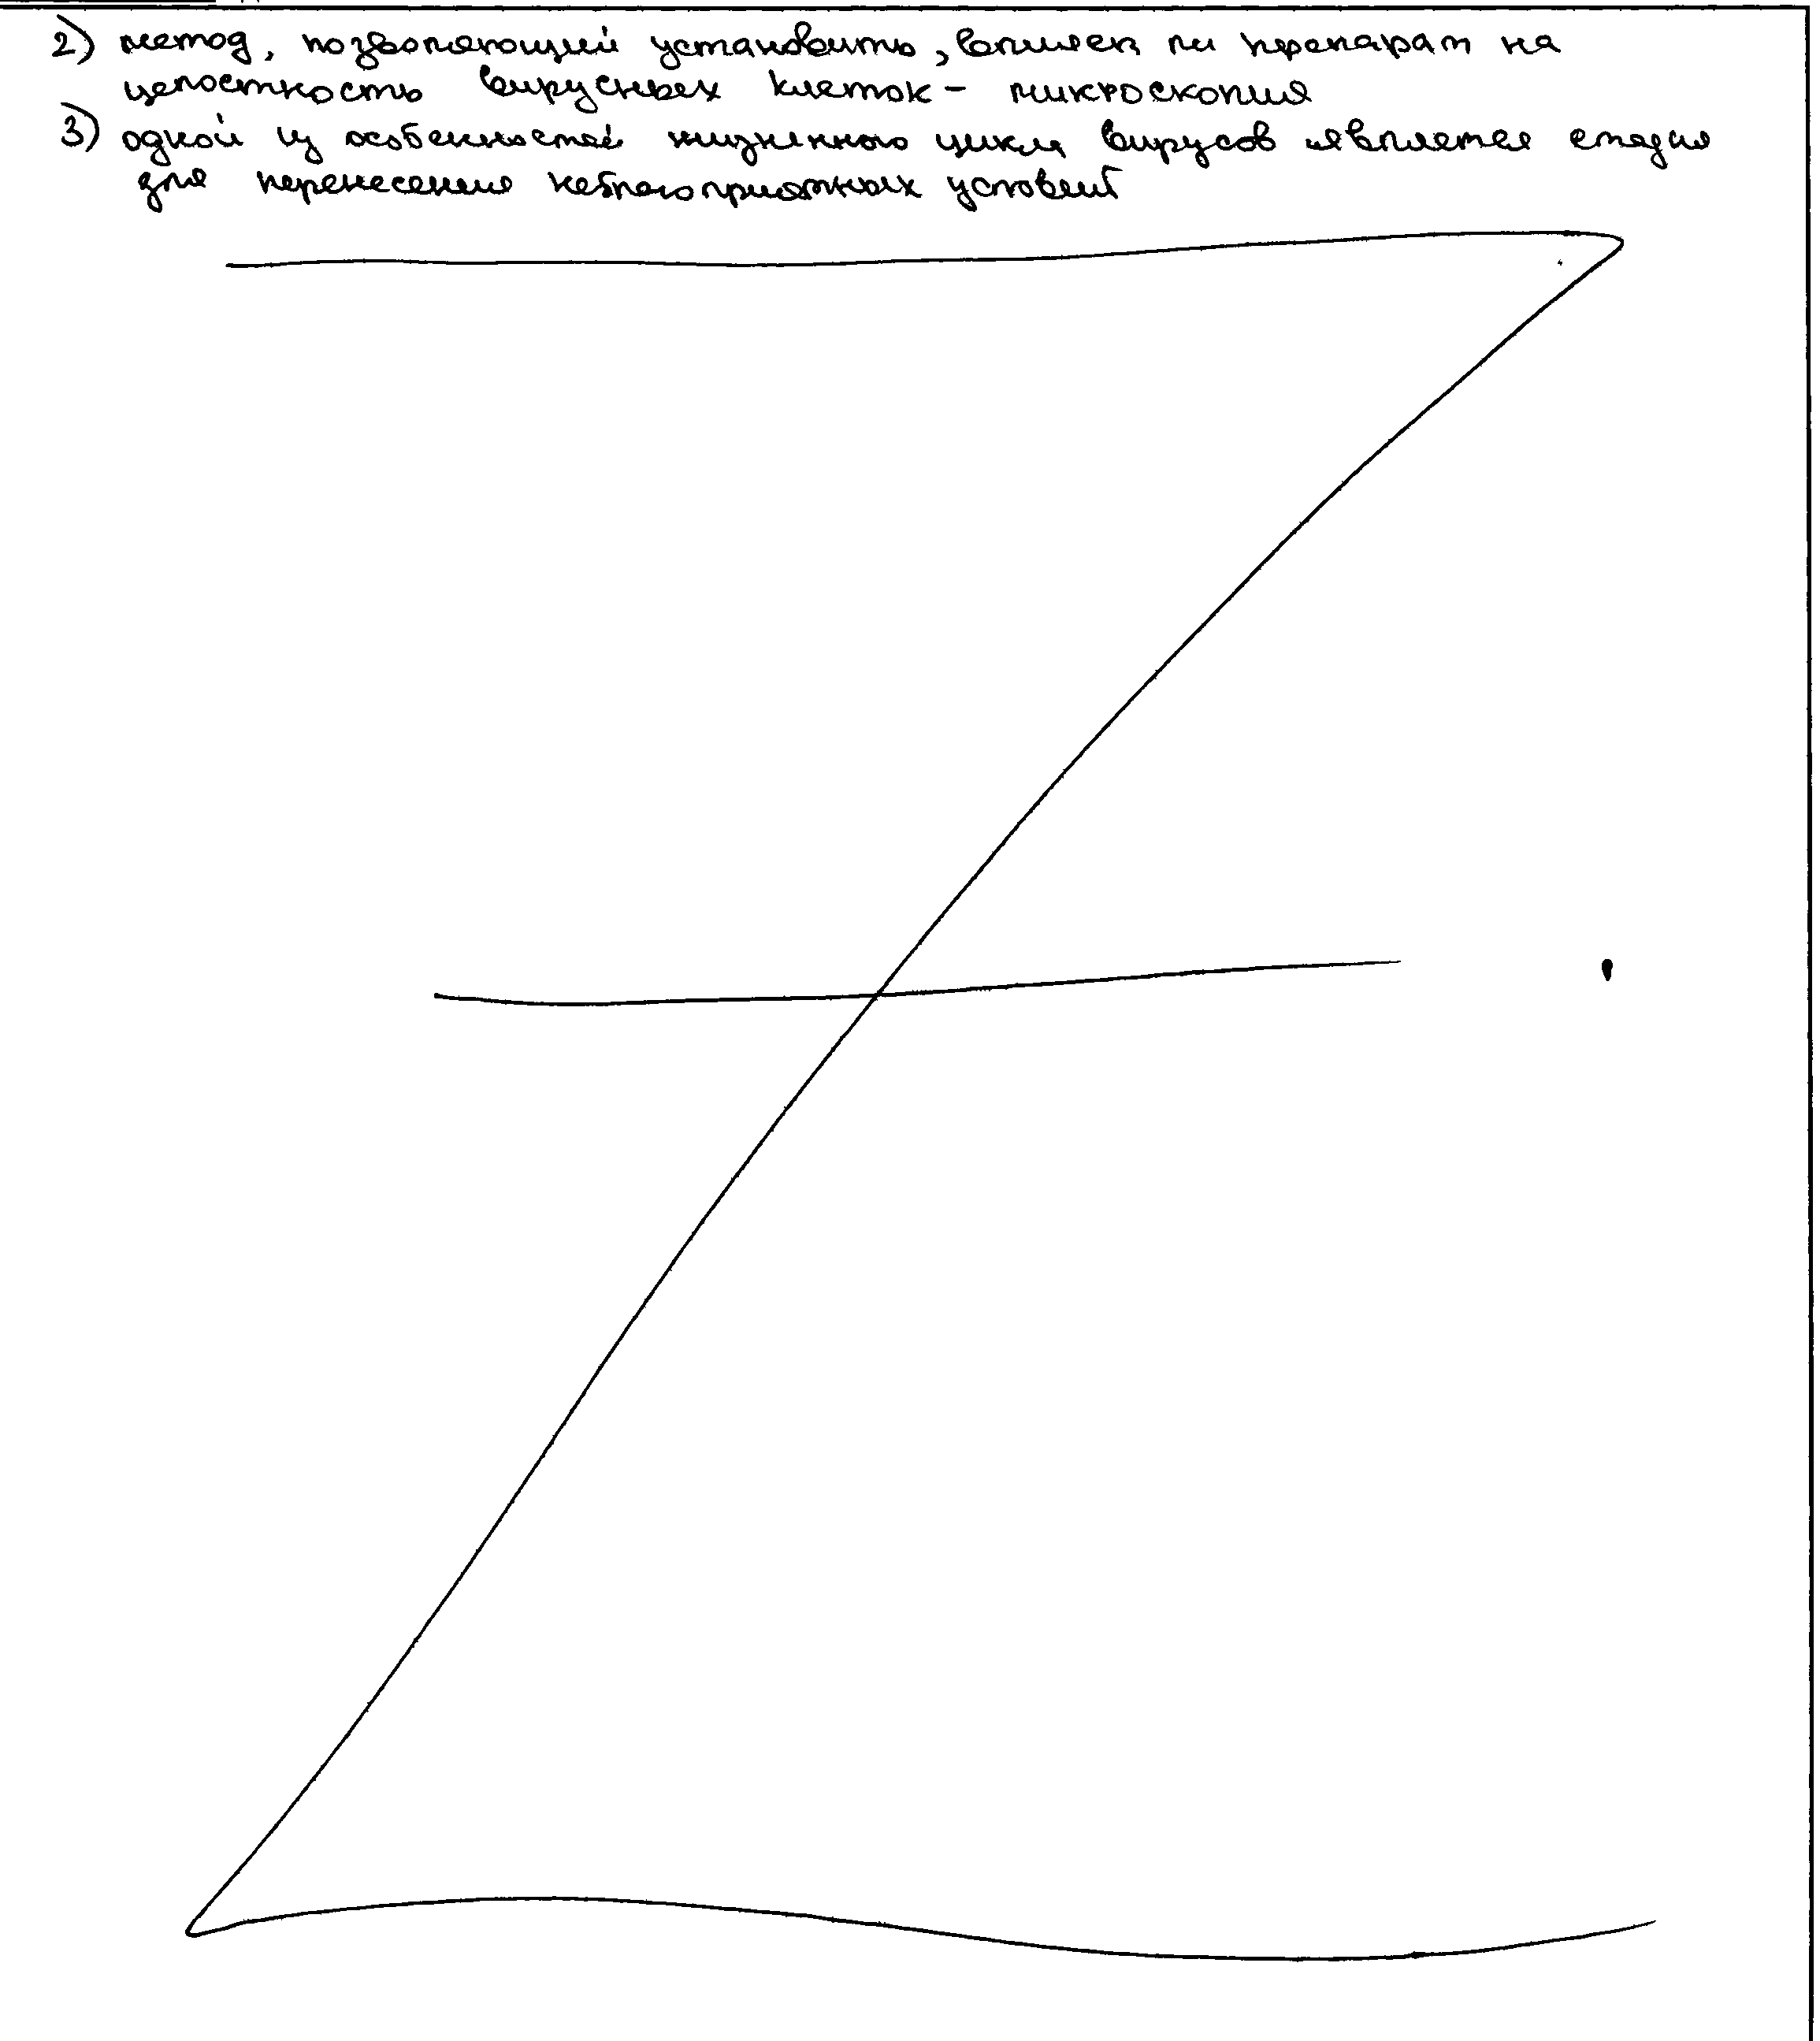 2) метод, позволяющий установить, влияел ли препарат на
целостность вирусных клеток - микроскопия
3) одной из особенностей жизненного цикла вирусов является стадия
для перенесения неблагоприятных условий